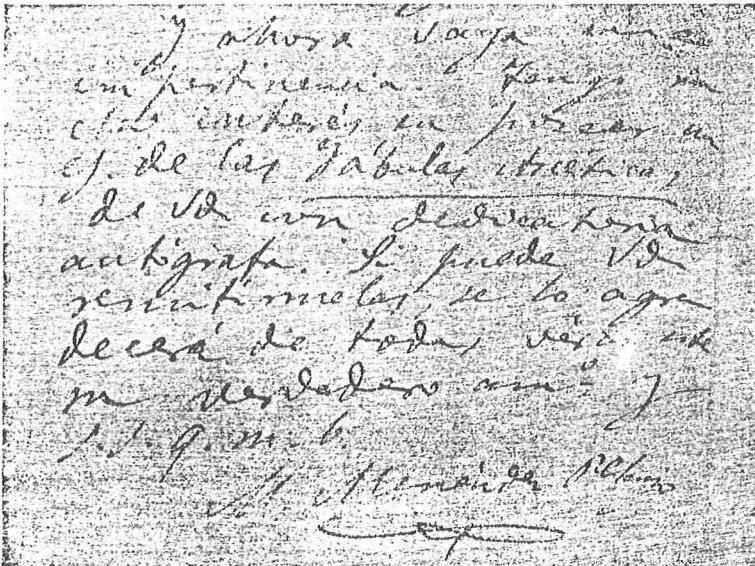 Y ahora vaya una
impertinencia. Tengo un
interés en poseer un
ej. de las Fábulas Ascéticas,
de Vd con dedicatoria
autógrafa. Si puede Vd
remitírmelas, se lo agra
decerá de todas veras este
su verdadero am.º y
s.s. q. m. b.
M. Menéndez Pelayo